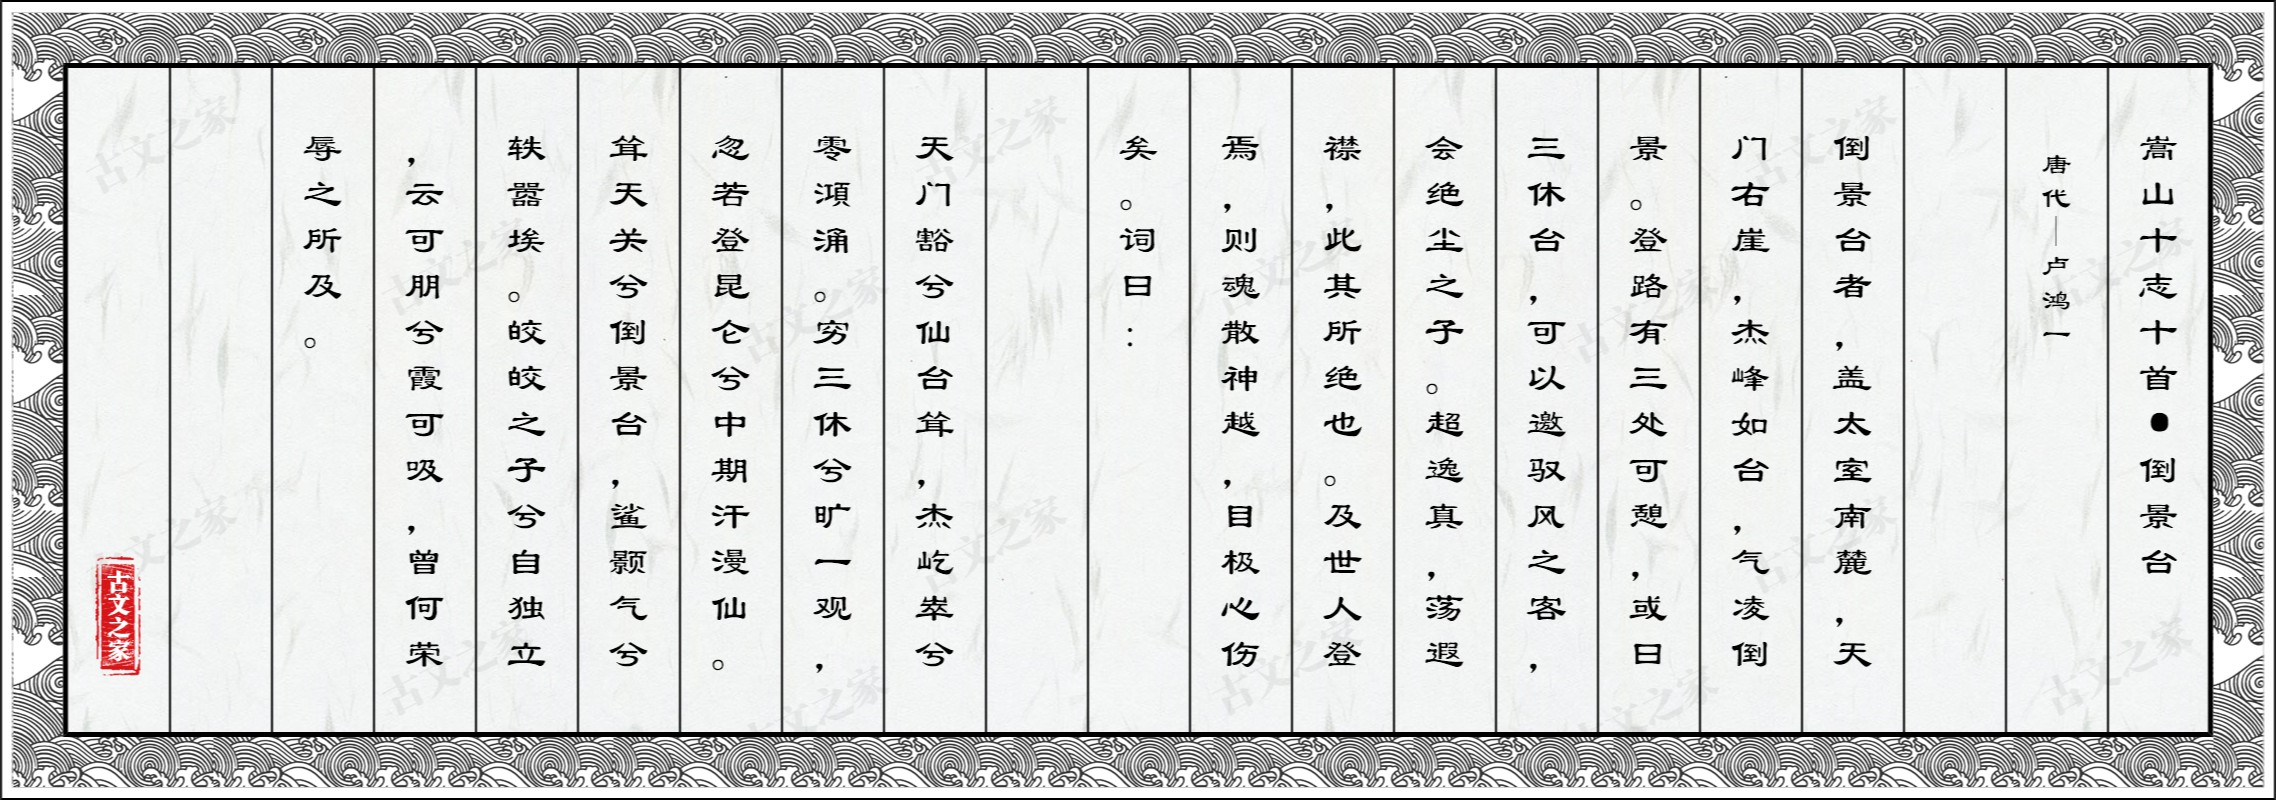 嵩山十志十首●倒景台
唐代—卢鸿一
倒景台者，盖太室南麓，天
门右崖，杰峰如台，气凌倒
景。登路有三处可憩，或曰
三休台，可以邀驭风之客，
会绝尘之子。超逸真，荡遐
襟，此其所绝也。及世人登
焉，则魂散神越，目极心伤
矣。词曰：
天门豁兮仙台耸，杰屹崒兮
零澒涌。穷三休兮旷一观，
忽若登昆仑兮中期汗漫仙。
耸天关兮倒景台，鲨颢气兮
轶嚣埃。皎皎之子兮自独立
，云可朋兮霞可吸，曾何荣
辱之所及。
古文之家